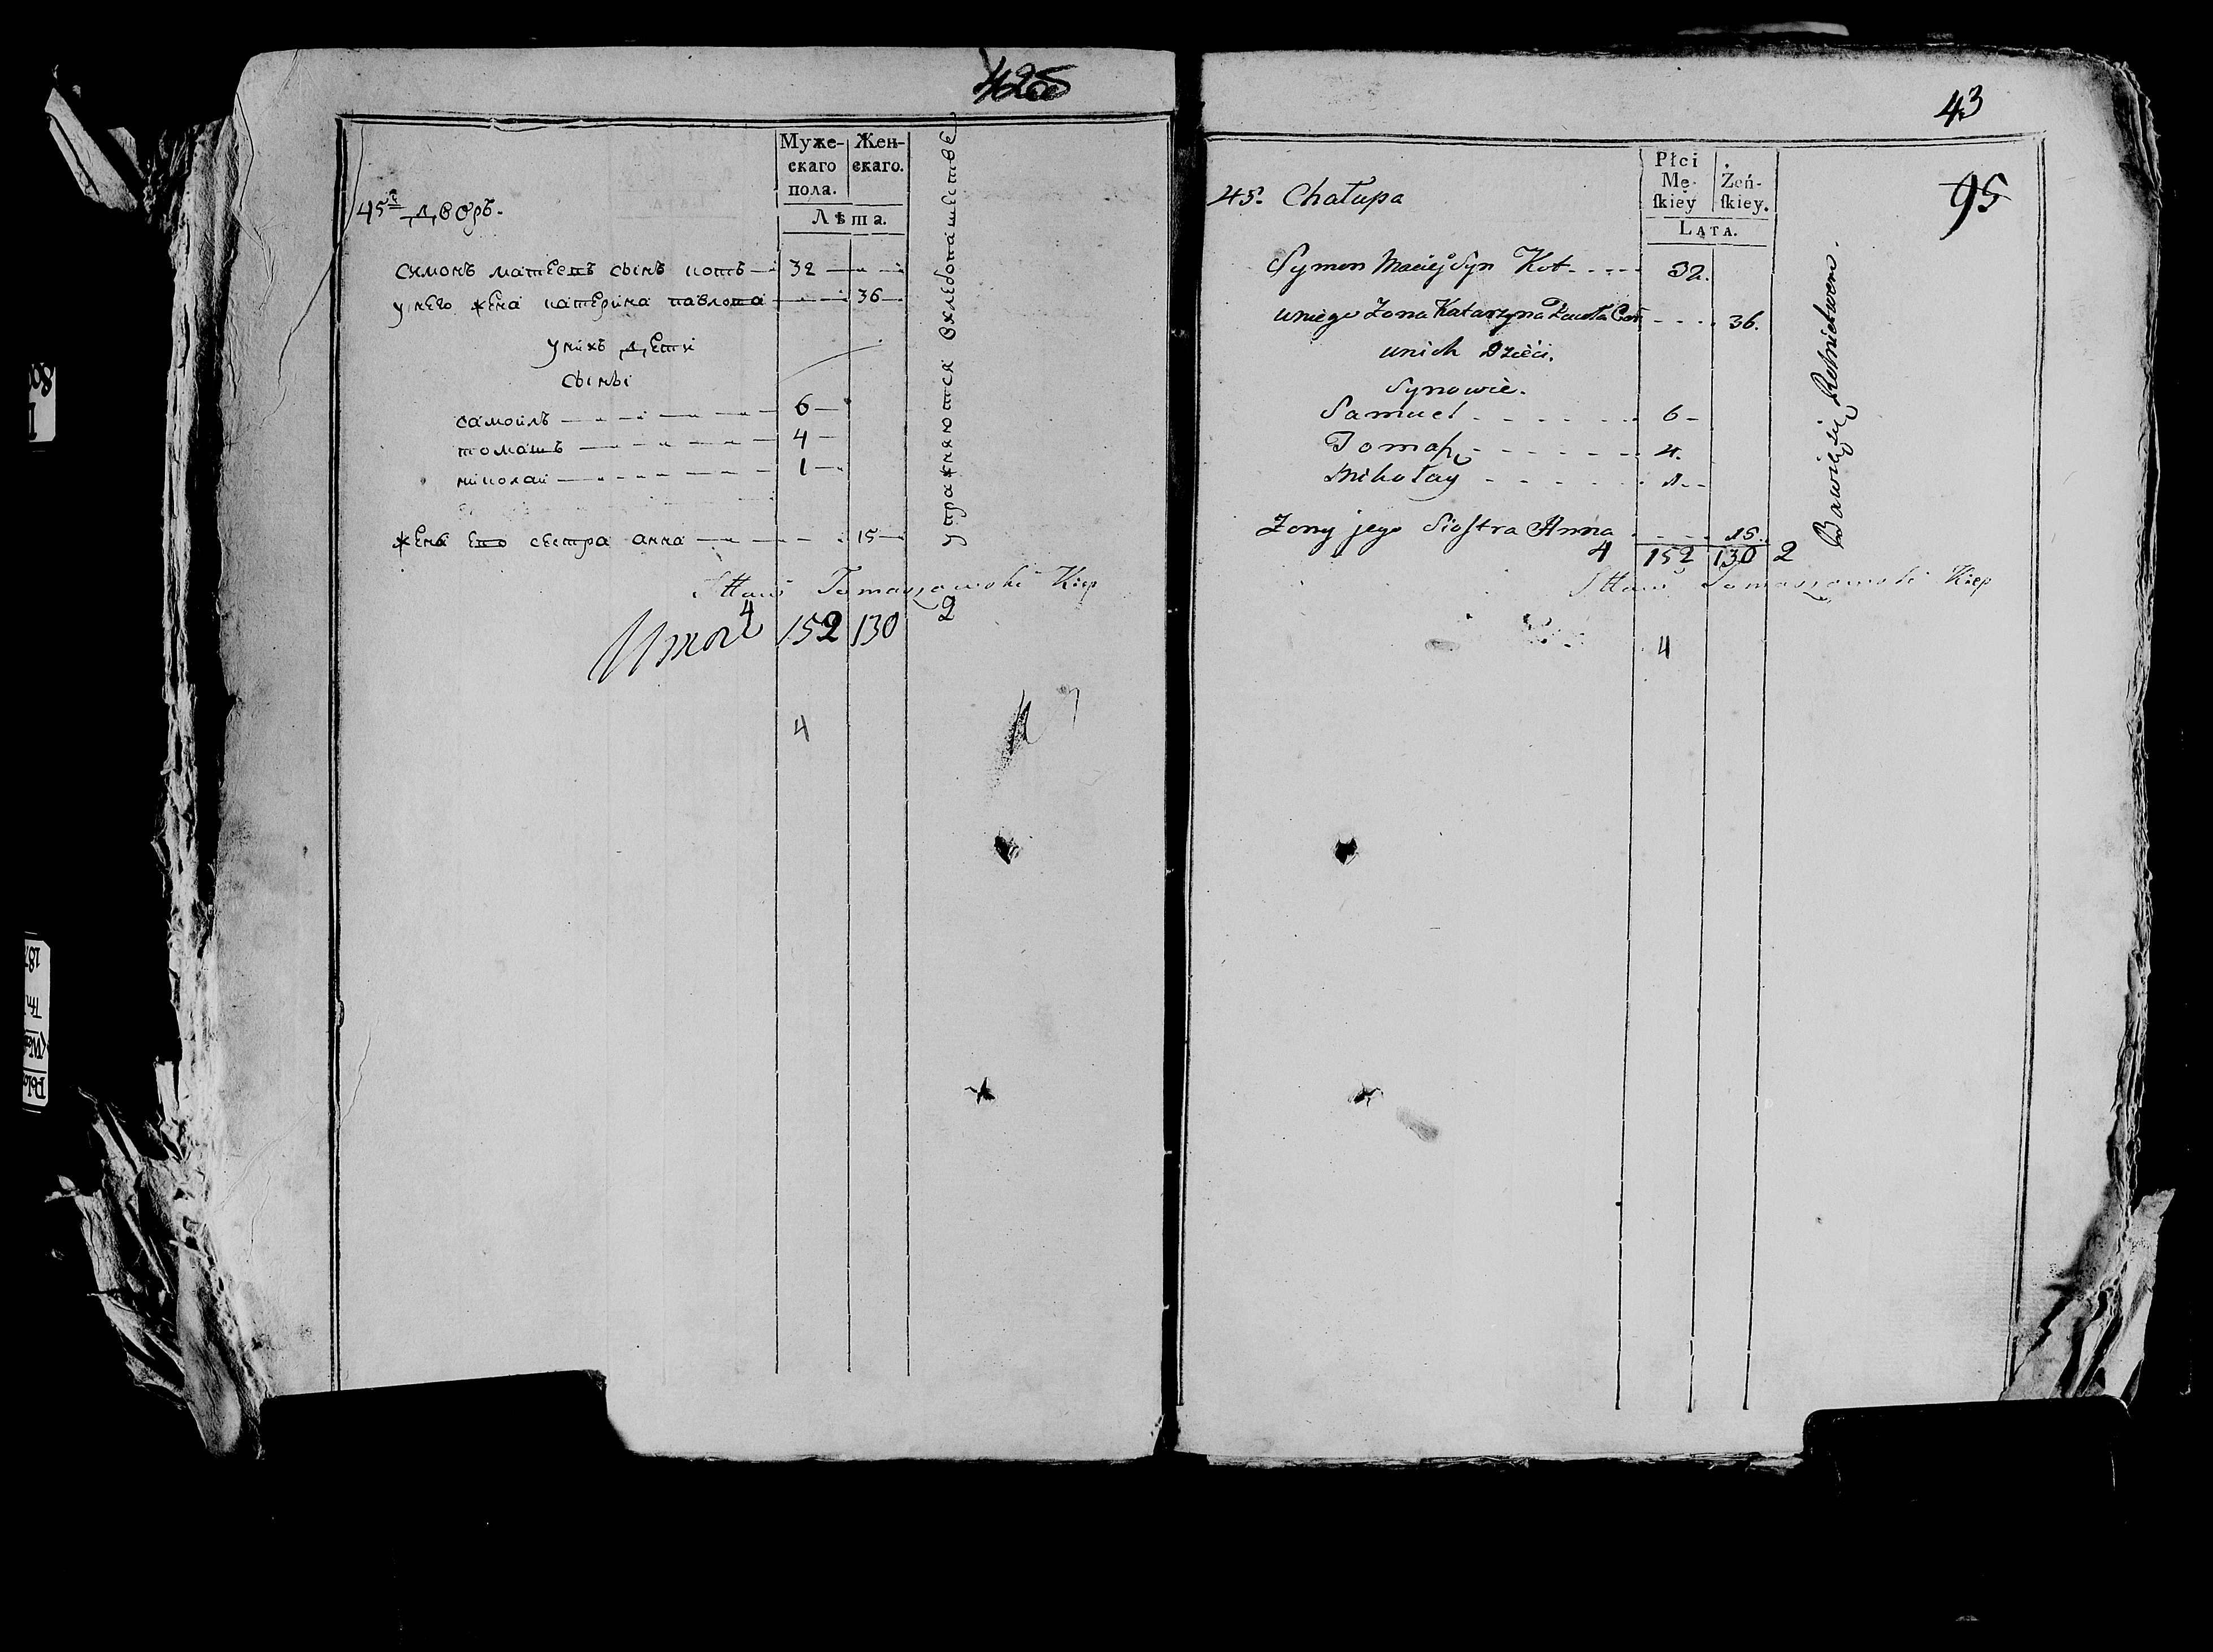 42об
Муже-
скаго
пола.
Жен-
скаго.
Лѣта.
45й дворъ.
симонъ матеевъ сынъ котъ 32
у него жена катерина павлова 36
у нихъ дети
сыны
самоилъ 6
томашъ 4
николаи 1
жены его сестра анна 15
упражняются вхлебопашестве
Tomaszowski Kiep
Итого 4 152 130 2
4
43
95
Płci
Mę-
ſkiey
Żeń-
ſkiey.
LATA.
45. Chałupa
Symon Maciej Syn Kot 32.
uniego Zona Katarzyna Pawła Cor 36.
unich Dzieci.
Synowie.
Samuel 6
Tomaſz 4.
Mikołay 1
Zony jego Siostra Anna 15.
Bawią się Rolnictwem.
4 152 130 2
Tomaszowski Kiep
4